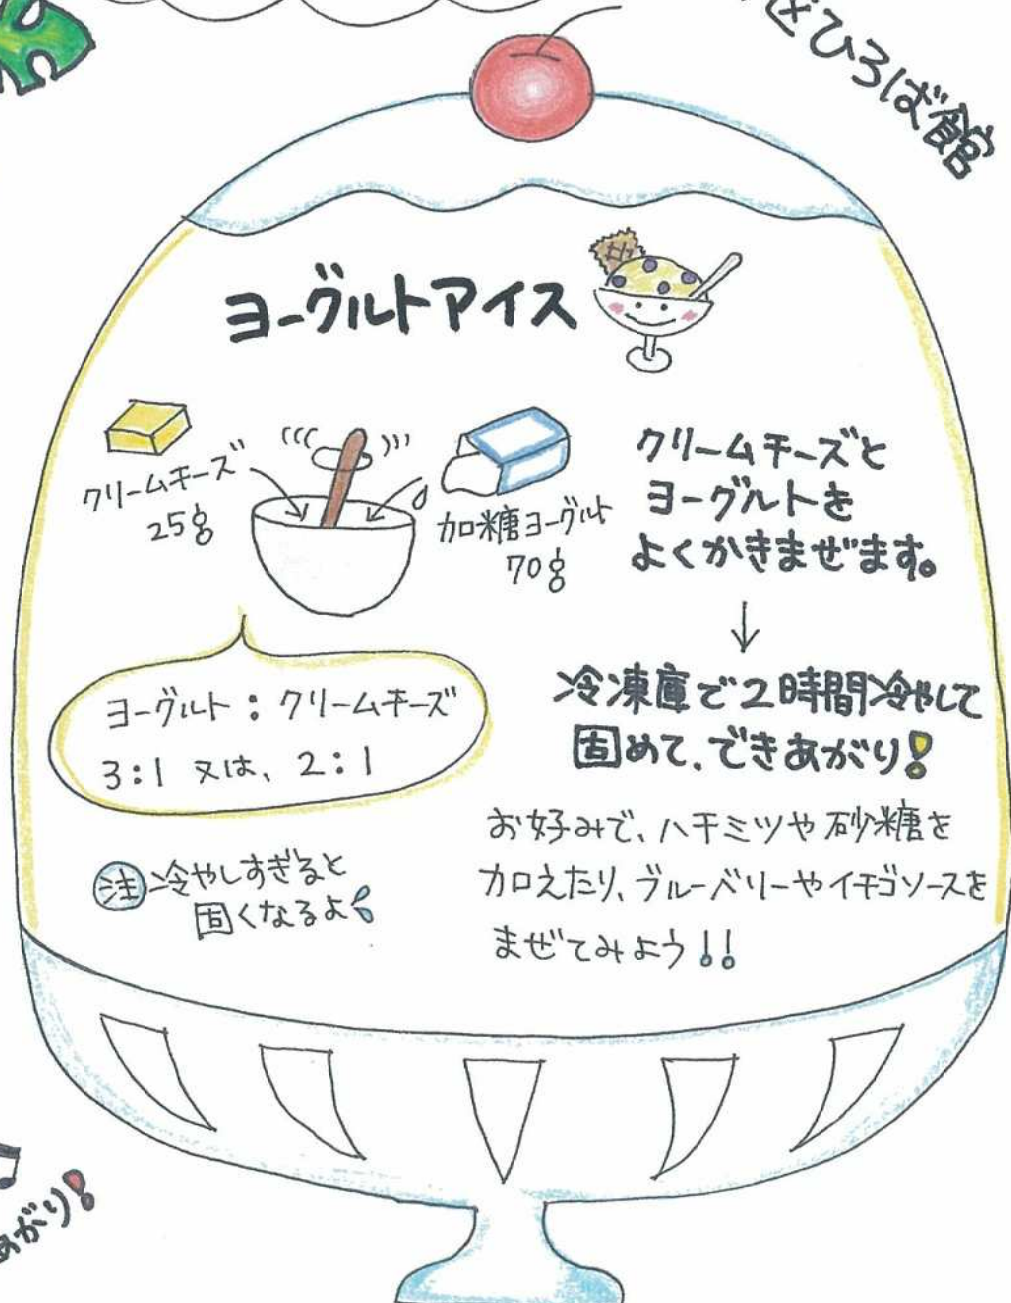 区ひろば館
ヨーグルトアイス
クリームチーズ
25g
加糖ヨーグルト
70g
クリームチーズと
ヨーグルトを
よくかきまぜます。
↓
冷凍庫で2時間冷やして
固めて、できあがり!
ヨーグルト:クリームチーズ
3:1 又は、2:1
お好みで、ハチミツや砂糖を
加えたり、ブルーベリーやイチゴソースを
まぜてみよう!!
注 冷やしすぎると
固くなるよ
あがり!